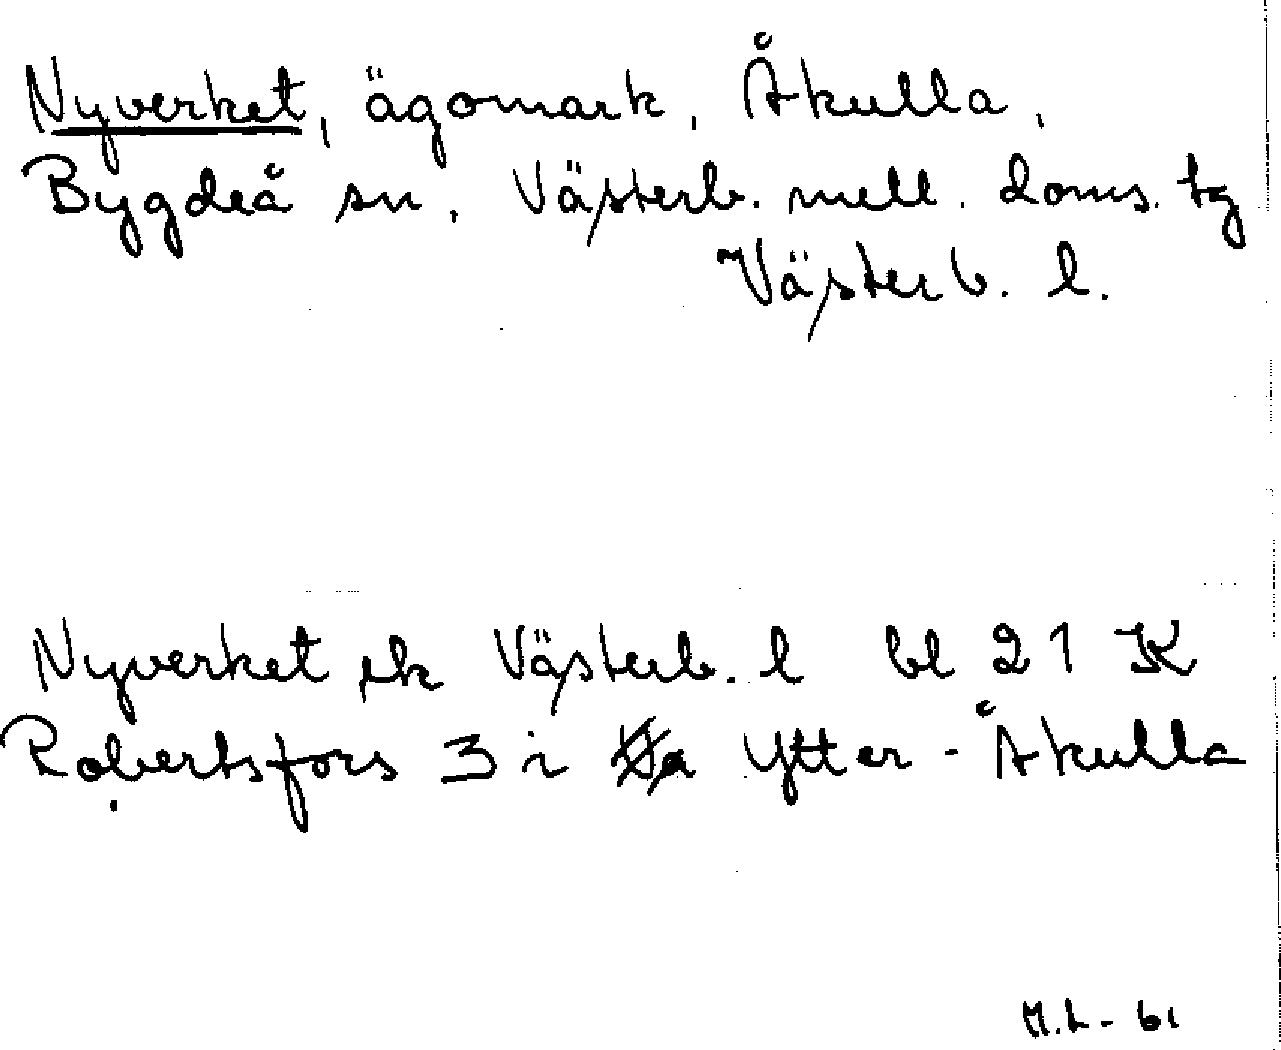 Nyverket, ägomark, Åkulla,
Bygdeå sn, Västerb. mell. doms. tg
Västerb. l.
Nyverket ek Västerb. l bl 21 K
Robertsfors 3 i Ytter-Åkulla
M.L-61